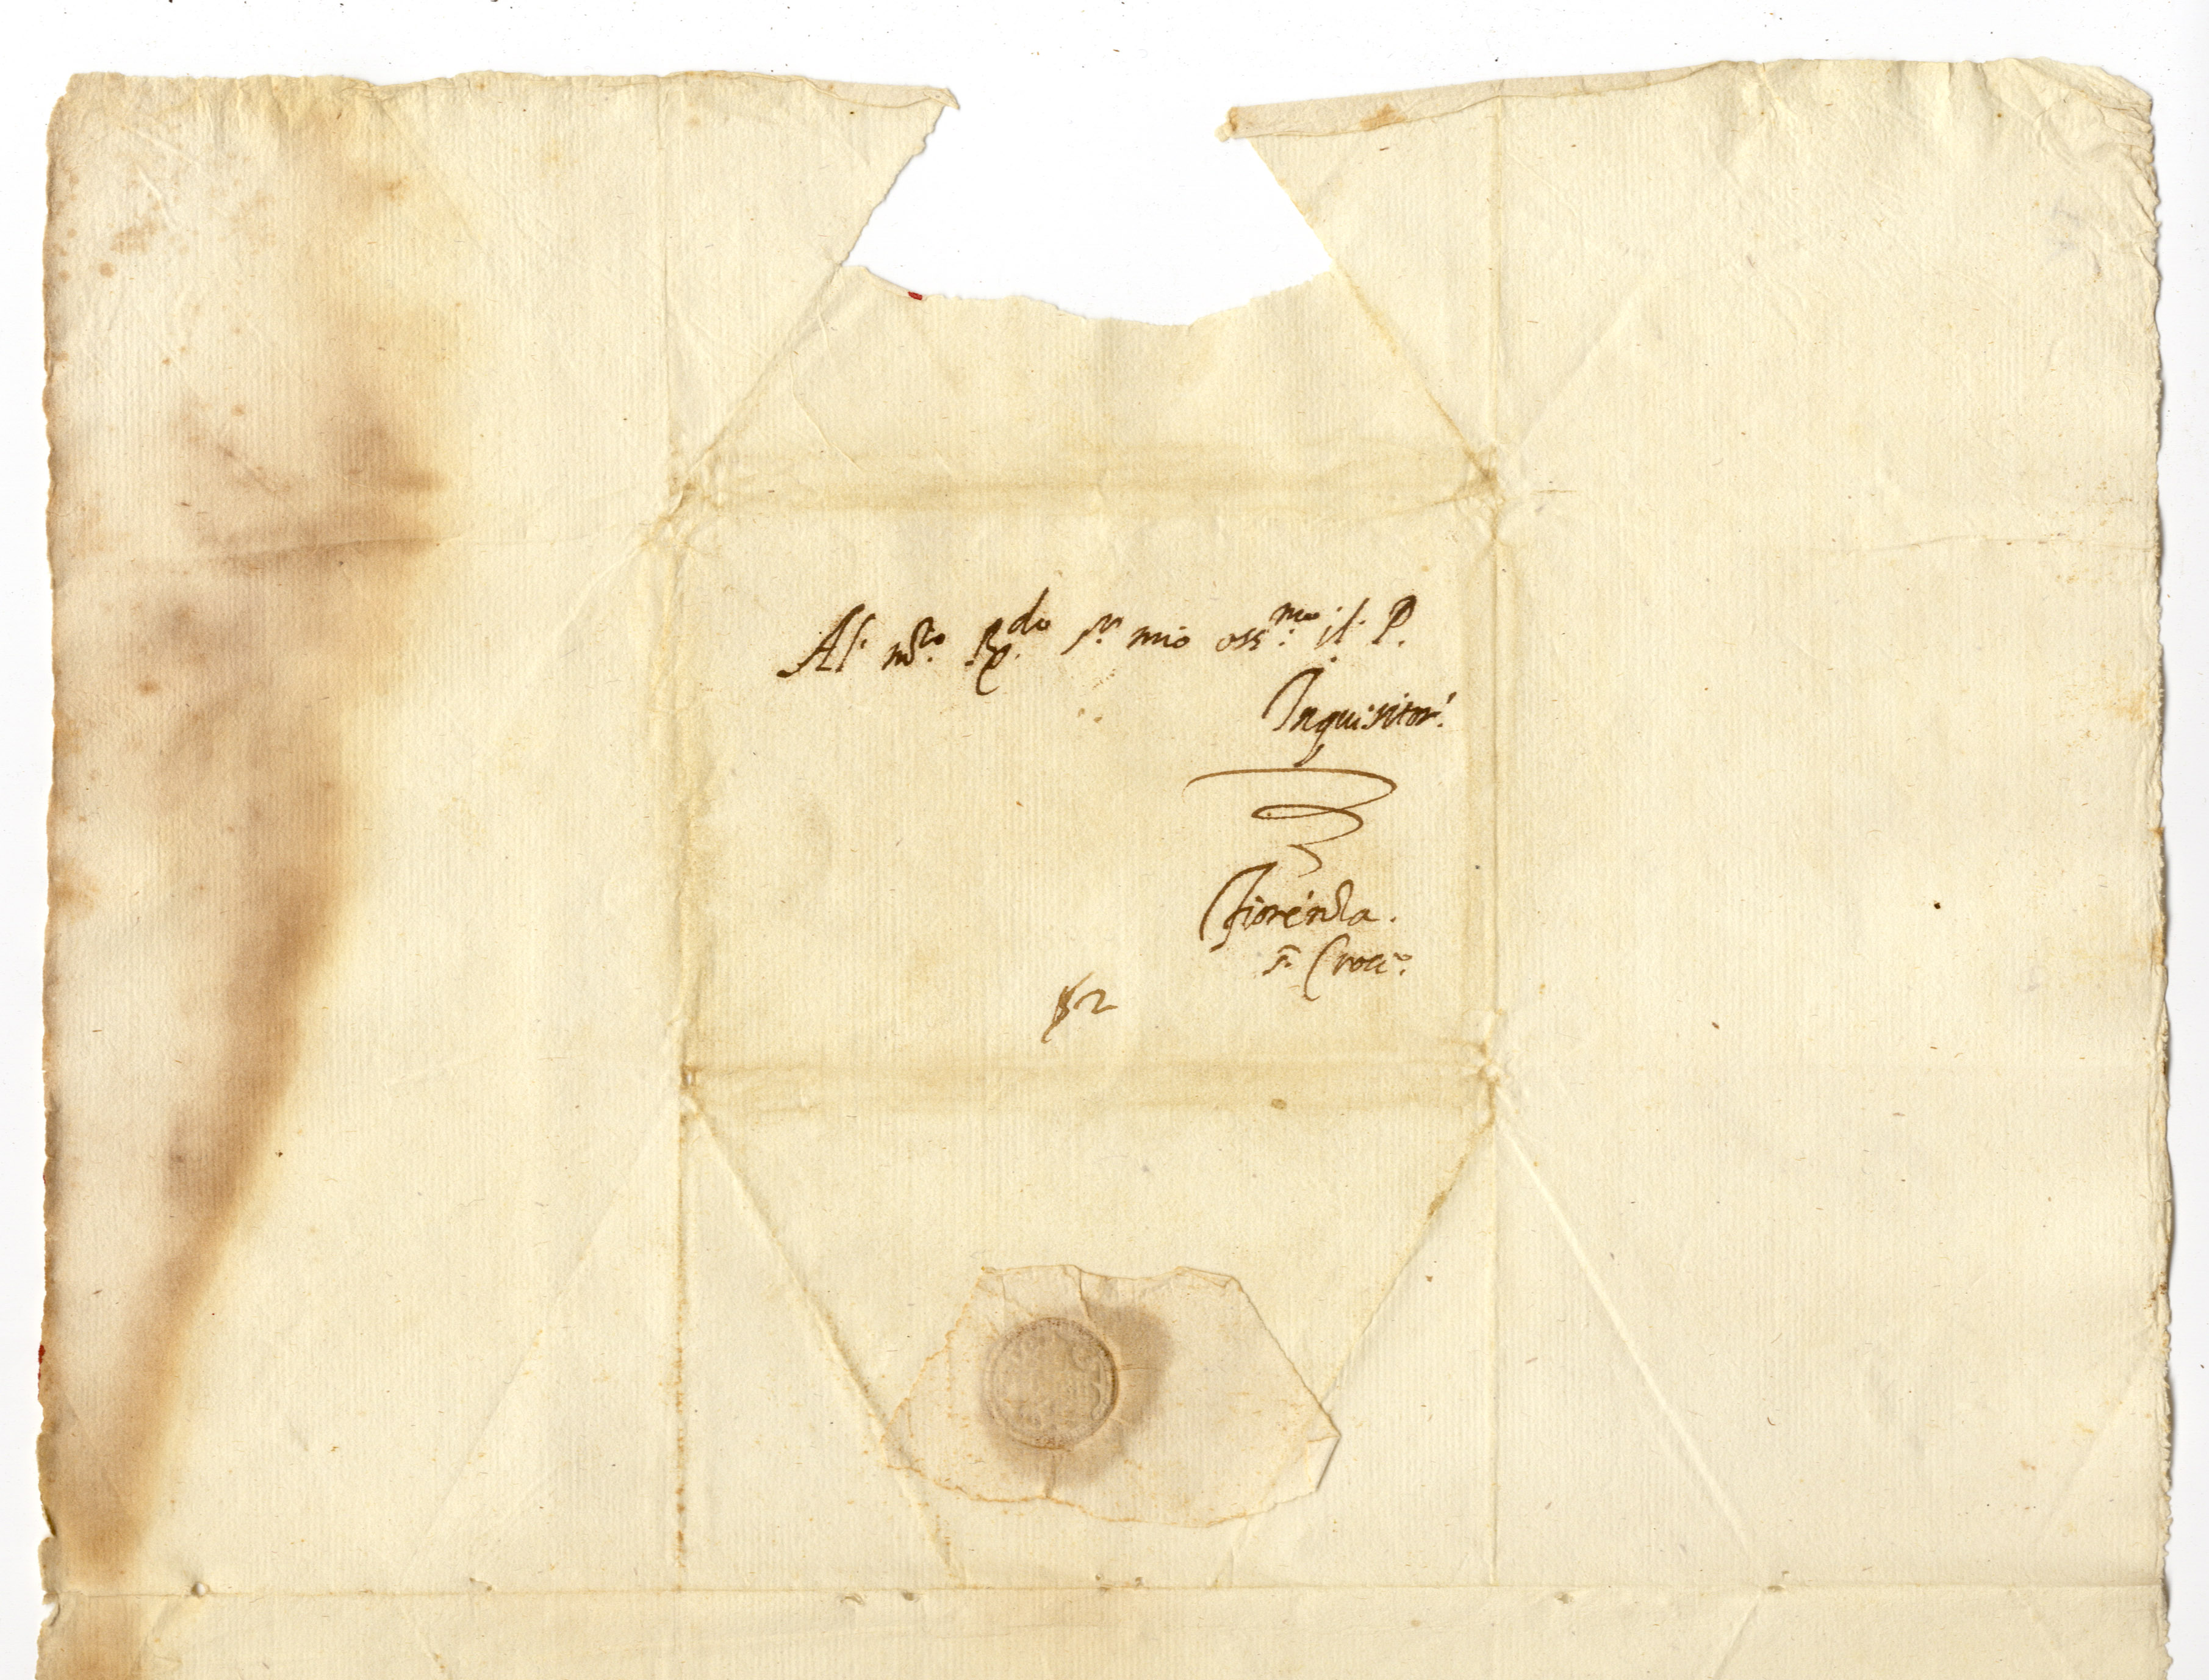 Al. m.to R.do s.r mio oss.mo il P.
Inquisitor.
Fiorenza.
s. Croce.